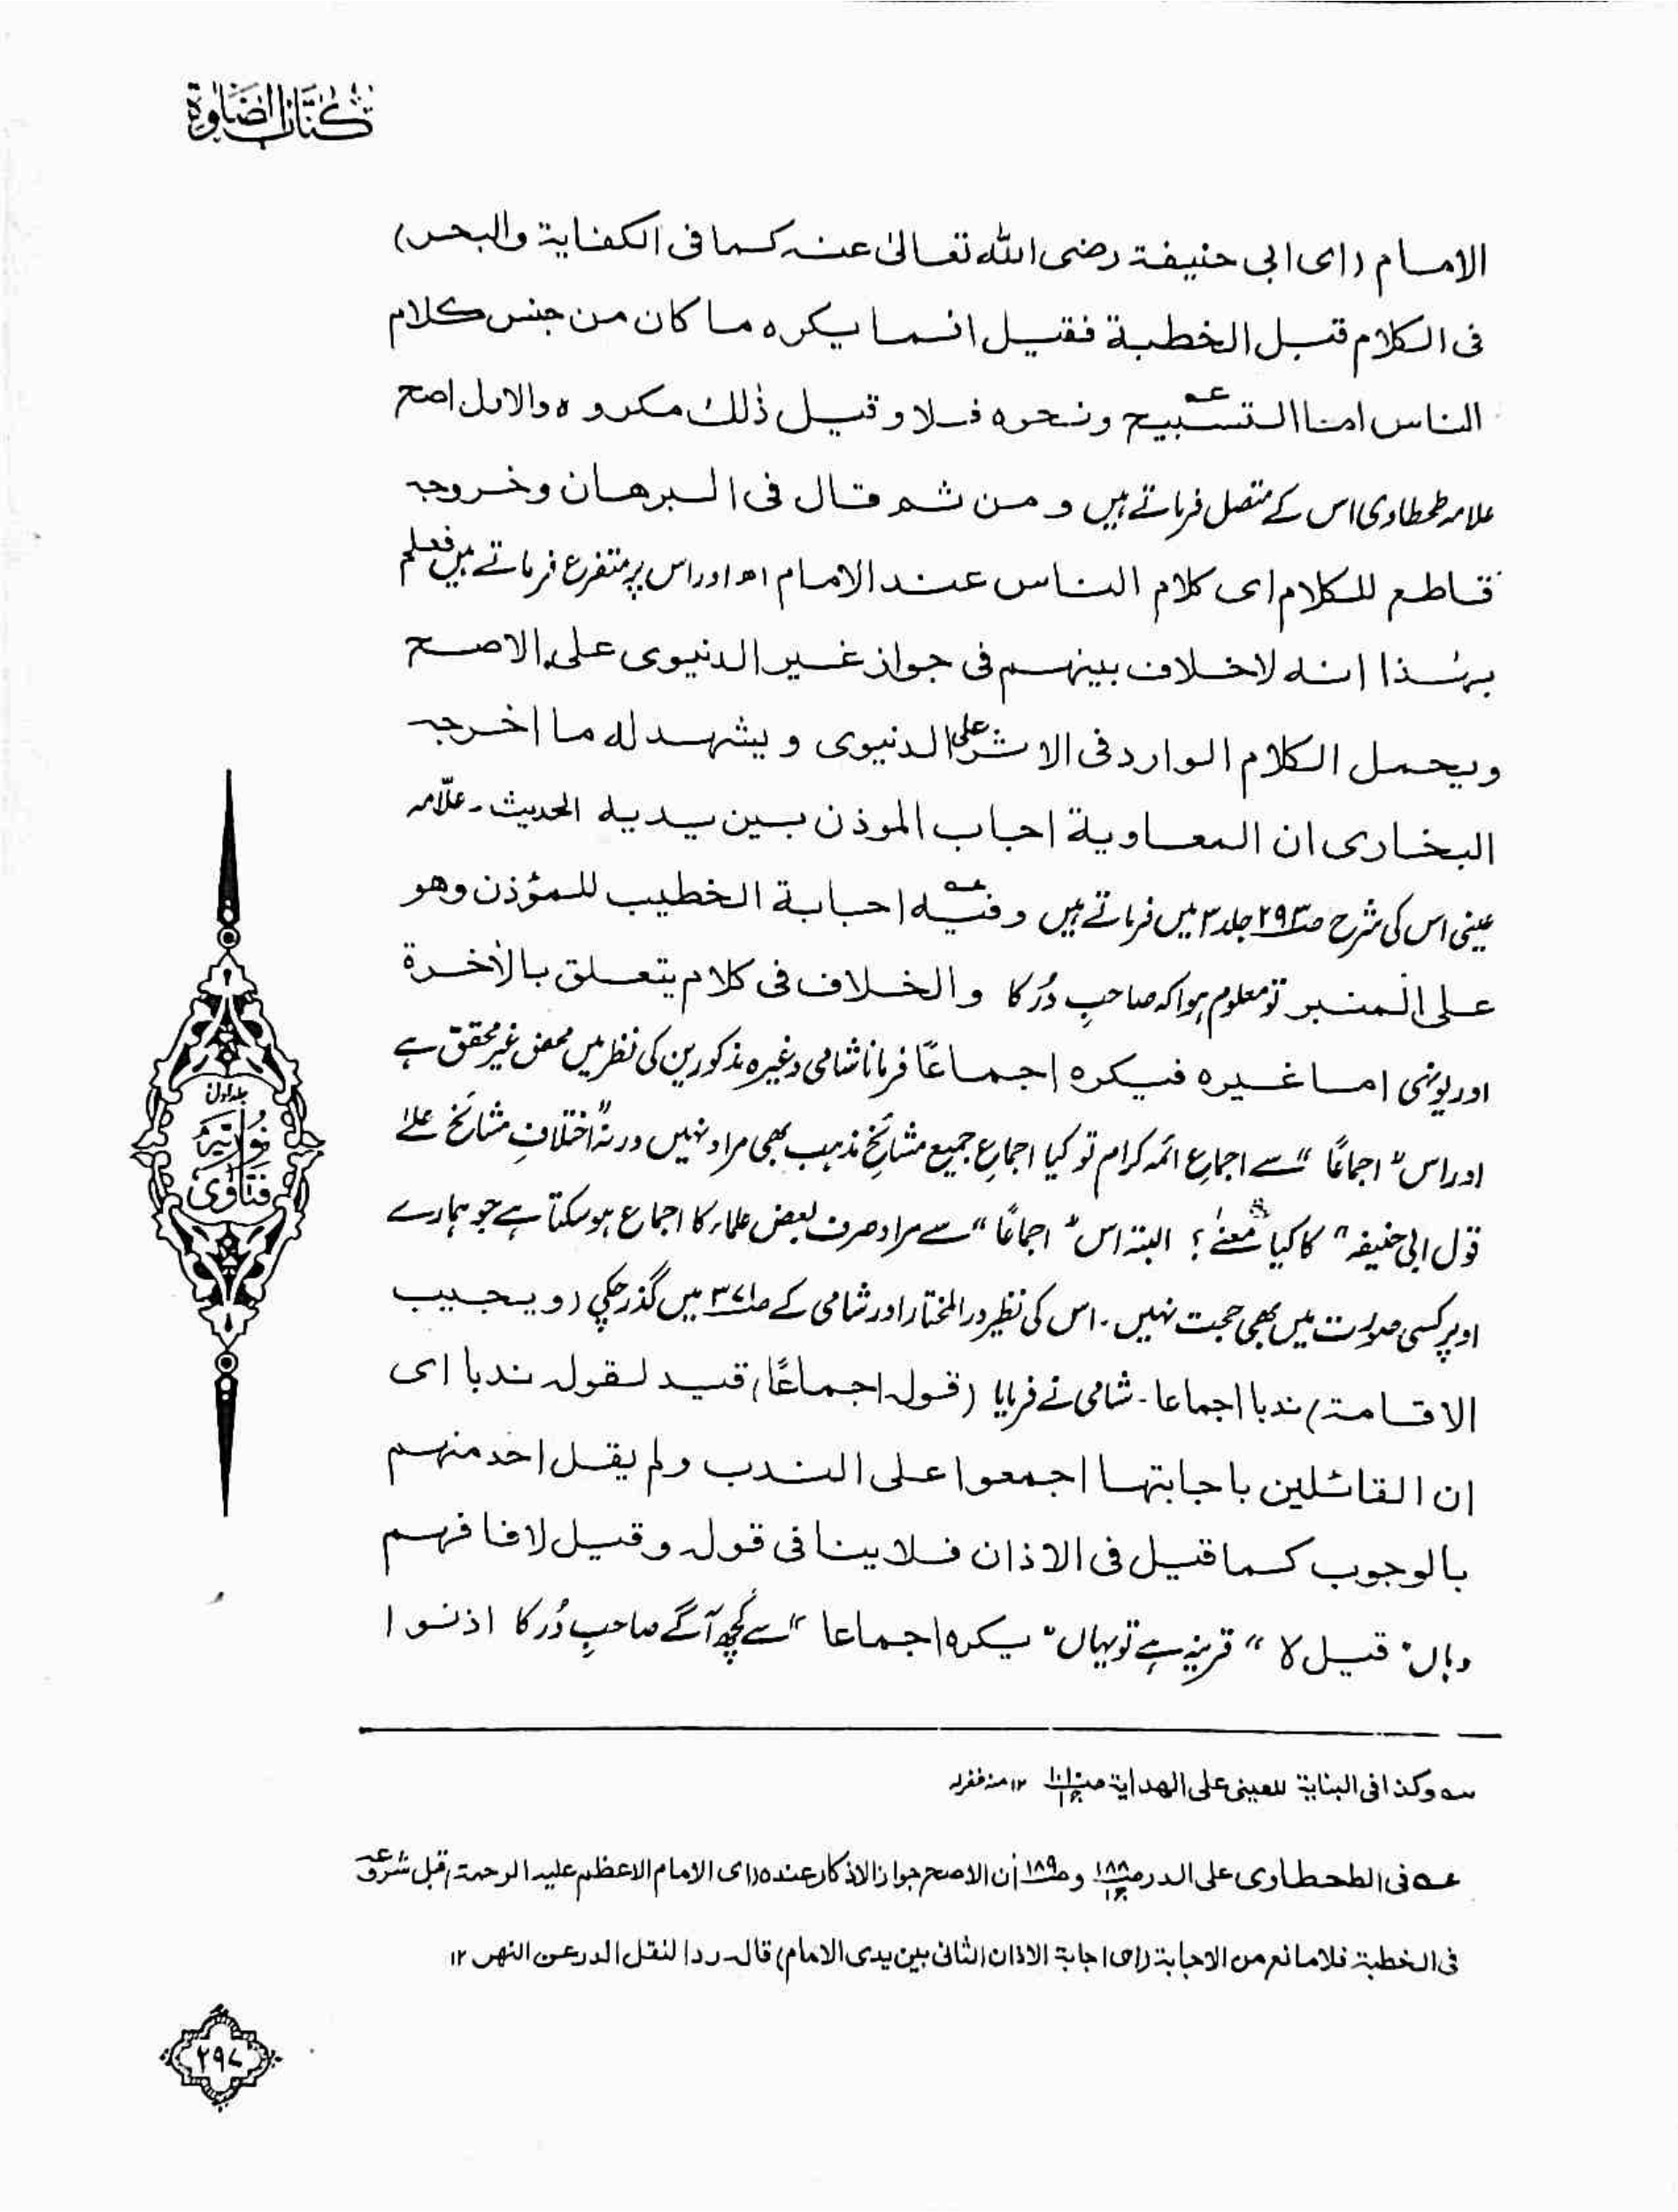 کتاب الصلوٰة
الامام (ای ابی حنیفة رضی الله تعالیٰ عنه کما فی الکفایة والبحر)
فی الکلام قبل الخطبة فقیل انما یکره ما کان من جنس کلام
الناس اما التسبیح عه ونحوه فلا وقیل ذٰلک مکروه والاول اصح
علامہ طحطاوی اس کے متصل فرماتے ہیں و من ثم قال فی البرهان وخروجه
قاطع للکلام ای کلام الناس عند الامام اھ اور اس پر متفرع فرماتے ہیں فعلم
بهٰذا انه لاخلاف بینهم فی جواز غیر الدنیوی علی الاصح
ویحمل الکلام الوارد فی الاثر علی الدنیوی و یشهد له ما اخرجه
البخاری ان المعاویة اجاب الموذن بین یدیه الحدیث۔ علّامہ
عینی اس کی شرح ص۲۹۳ جلد ۳ میں فرماتے ہیں وفیه عه اجابة الخطیب للمؤذن وهو
علی المنبر تو معلوم ہوا کہ صاحبِ دُر کا والخلاف فی کلام یتعلق بالأخرة
اور یونہی اما غیره فیکره اجماعًا فرمانا شامی وغیرہ مذکورین کی نظر میں محض غیر محقق ہے
اور اس " اجماعًا " سے اجماعِ ائمہ کرام تو کیا اجماعِ جمیع مشائخِ مذہب بھی مراد نہیں ورنہ "اختلافِ مشائخ علیٰ
قول ابی حنیفہ " کا کیا معنے ؟ البتہ اس " اجماعًا " سے مراد صرف بعض علماء کا اجماع ہو سکتا ہے جو ہمارے
اوپر کسی صورت میں بھی حجت نہیں۔ اس کی نظیر در المختار اور شامی کے ص۳۷۱ میں گذر چکی (ویجیب
الاقامة) ندبا اجماعا۔ شامی نے فرمایا (قوله اجماعًا) قید لقوله ندبا ای
ان القائلین باجابتها اجمعوا علی الندب ولم یقل احد منهم
بالوجوب کما قیل فی الاذان فلا ینافی قوله وقیل لا فافهم
وہاں " قیل لا " قرینہ ہے تو یہاں " یکره اجماعا " سے کچھ آگے صاحبِ دُر کا اذنوا
عه وکذا فی البنایة للعینی علی الهدایة ۱۲ منہ غفرلہ
عه فی الطحطاوی علی الدر ص۱۸۸ و ص۱۸۹ أن الاصح جواز الاذکار عنده (ای الامام الاعظم علیه الرحمة) قبل شروعه
فی الخطبة فلا مانع من الاجابة (ای اجابة الاذان الثانی بین یدی الامام) قاله ردا لنقل الدر عن النهر ۱۲
جلد اول
نُوریّہ
فتاویٰ
۲۹۷